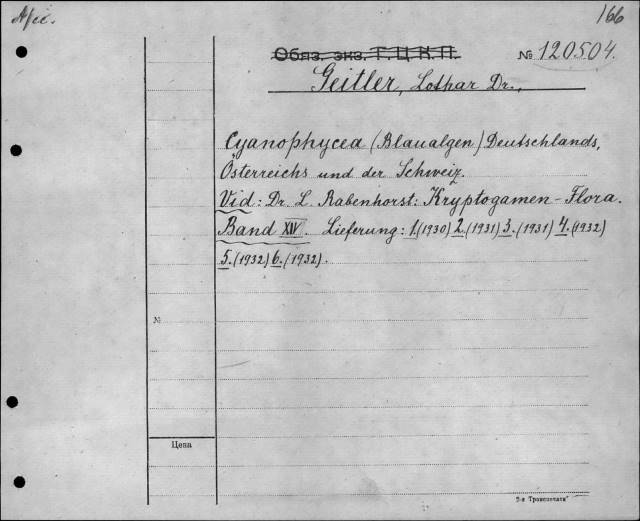 166
Обяз. экз. Г.Ц.К.П.
№ 120504.
Geitler, Lothar Dr.,
Cyanophycea (Blaualgen) Deutschlands,
Österreichs und der Schweiz.
Vid: Dr. L. Rabenhorst: Kryptogamen-Flora.
Band XIV. Lieferung: 1.(1930) 2.(1931) 3.(1931) 4.(1932)
5.(1932) 6.(1932).
№
Цена